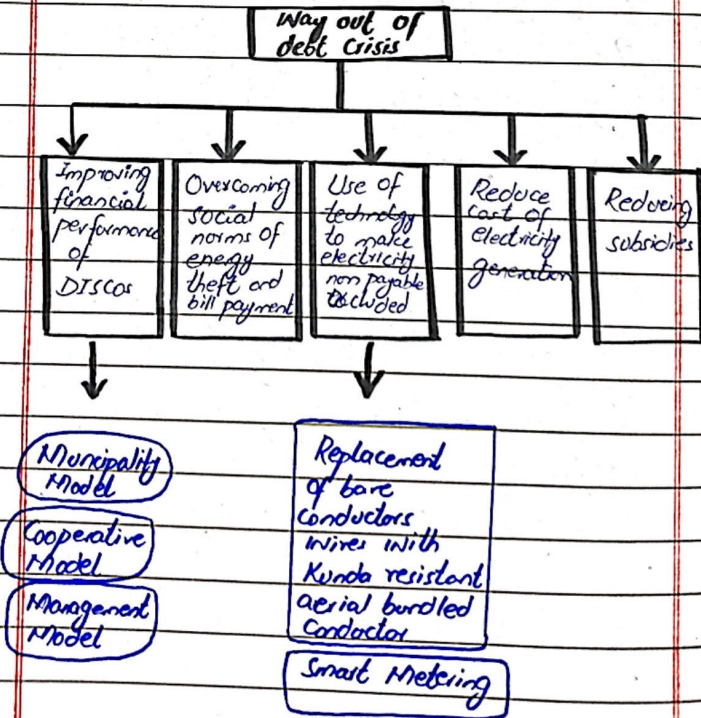 Way out of
debt Crisis
Improving
financial
performance
of
DISCOs
Overcoming
social
norms of
energy
theft and
bill payment
Use of
technology
to make
electricity
non payable
Excluded
Reduce
Cost of
electricity
generation
Reducing
subsidies
Municipality
Model
Cooperative
Model
Management
Model
Replacement
of bare
conductors
wires with
Kunda resistant
aerial bundled
Conductor
Smart Metering